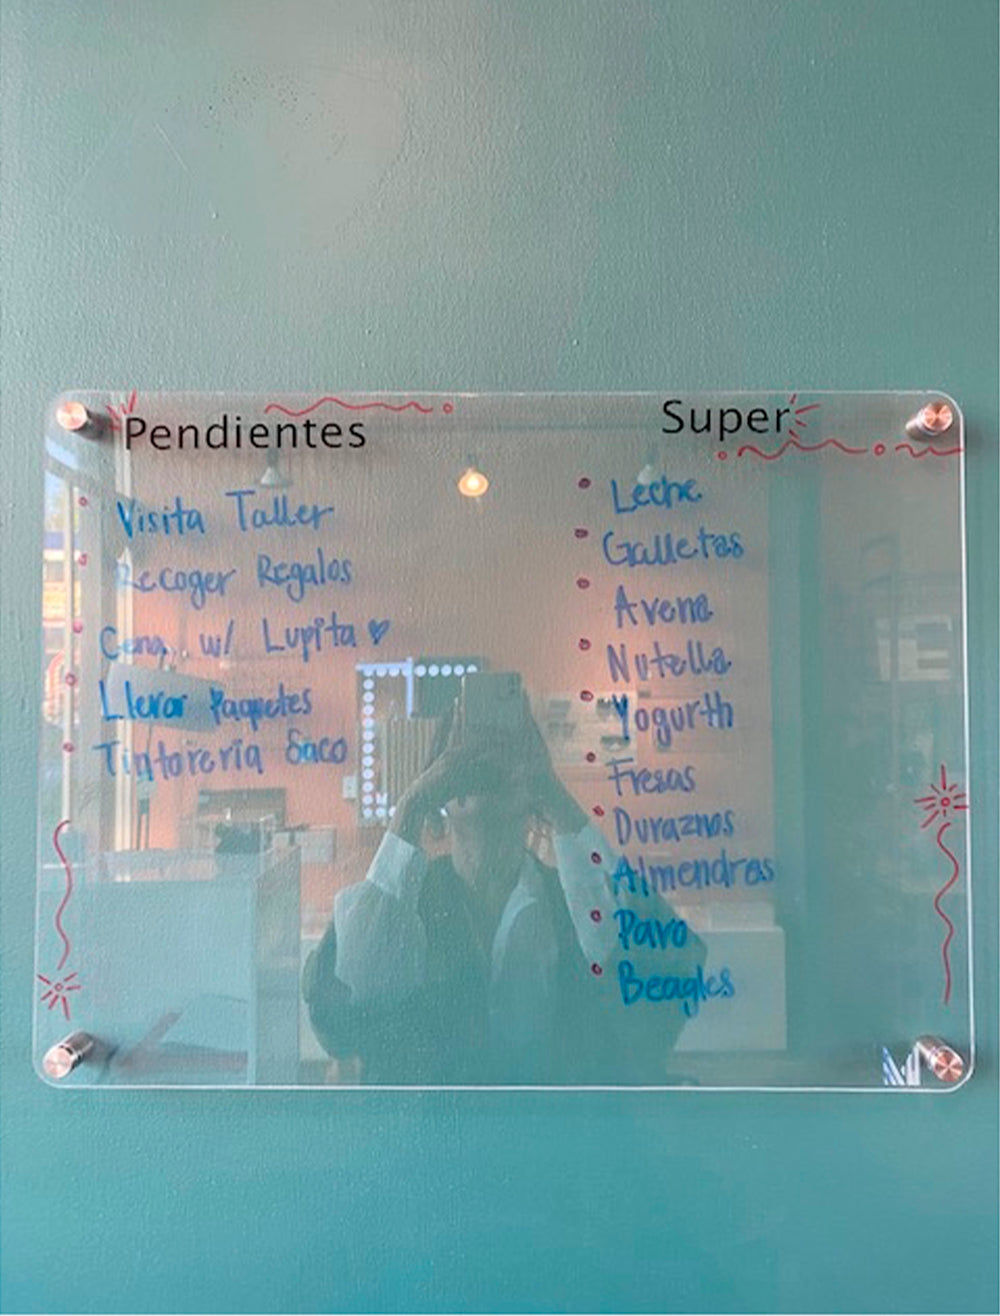 Pendientes
Visita Taller
Recoger Regalos
Cena w/ Lupita
Llevar Paquetes
Tintorería Saco
Super
Leche
Galletas
Avena
Nutella
Yogurth
Fresas
Duraznos
Almendras
Pavo
Beagles